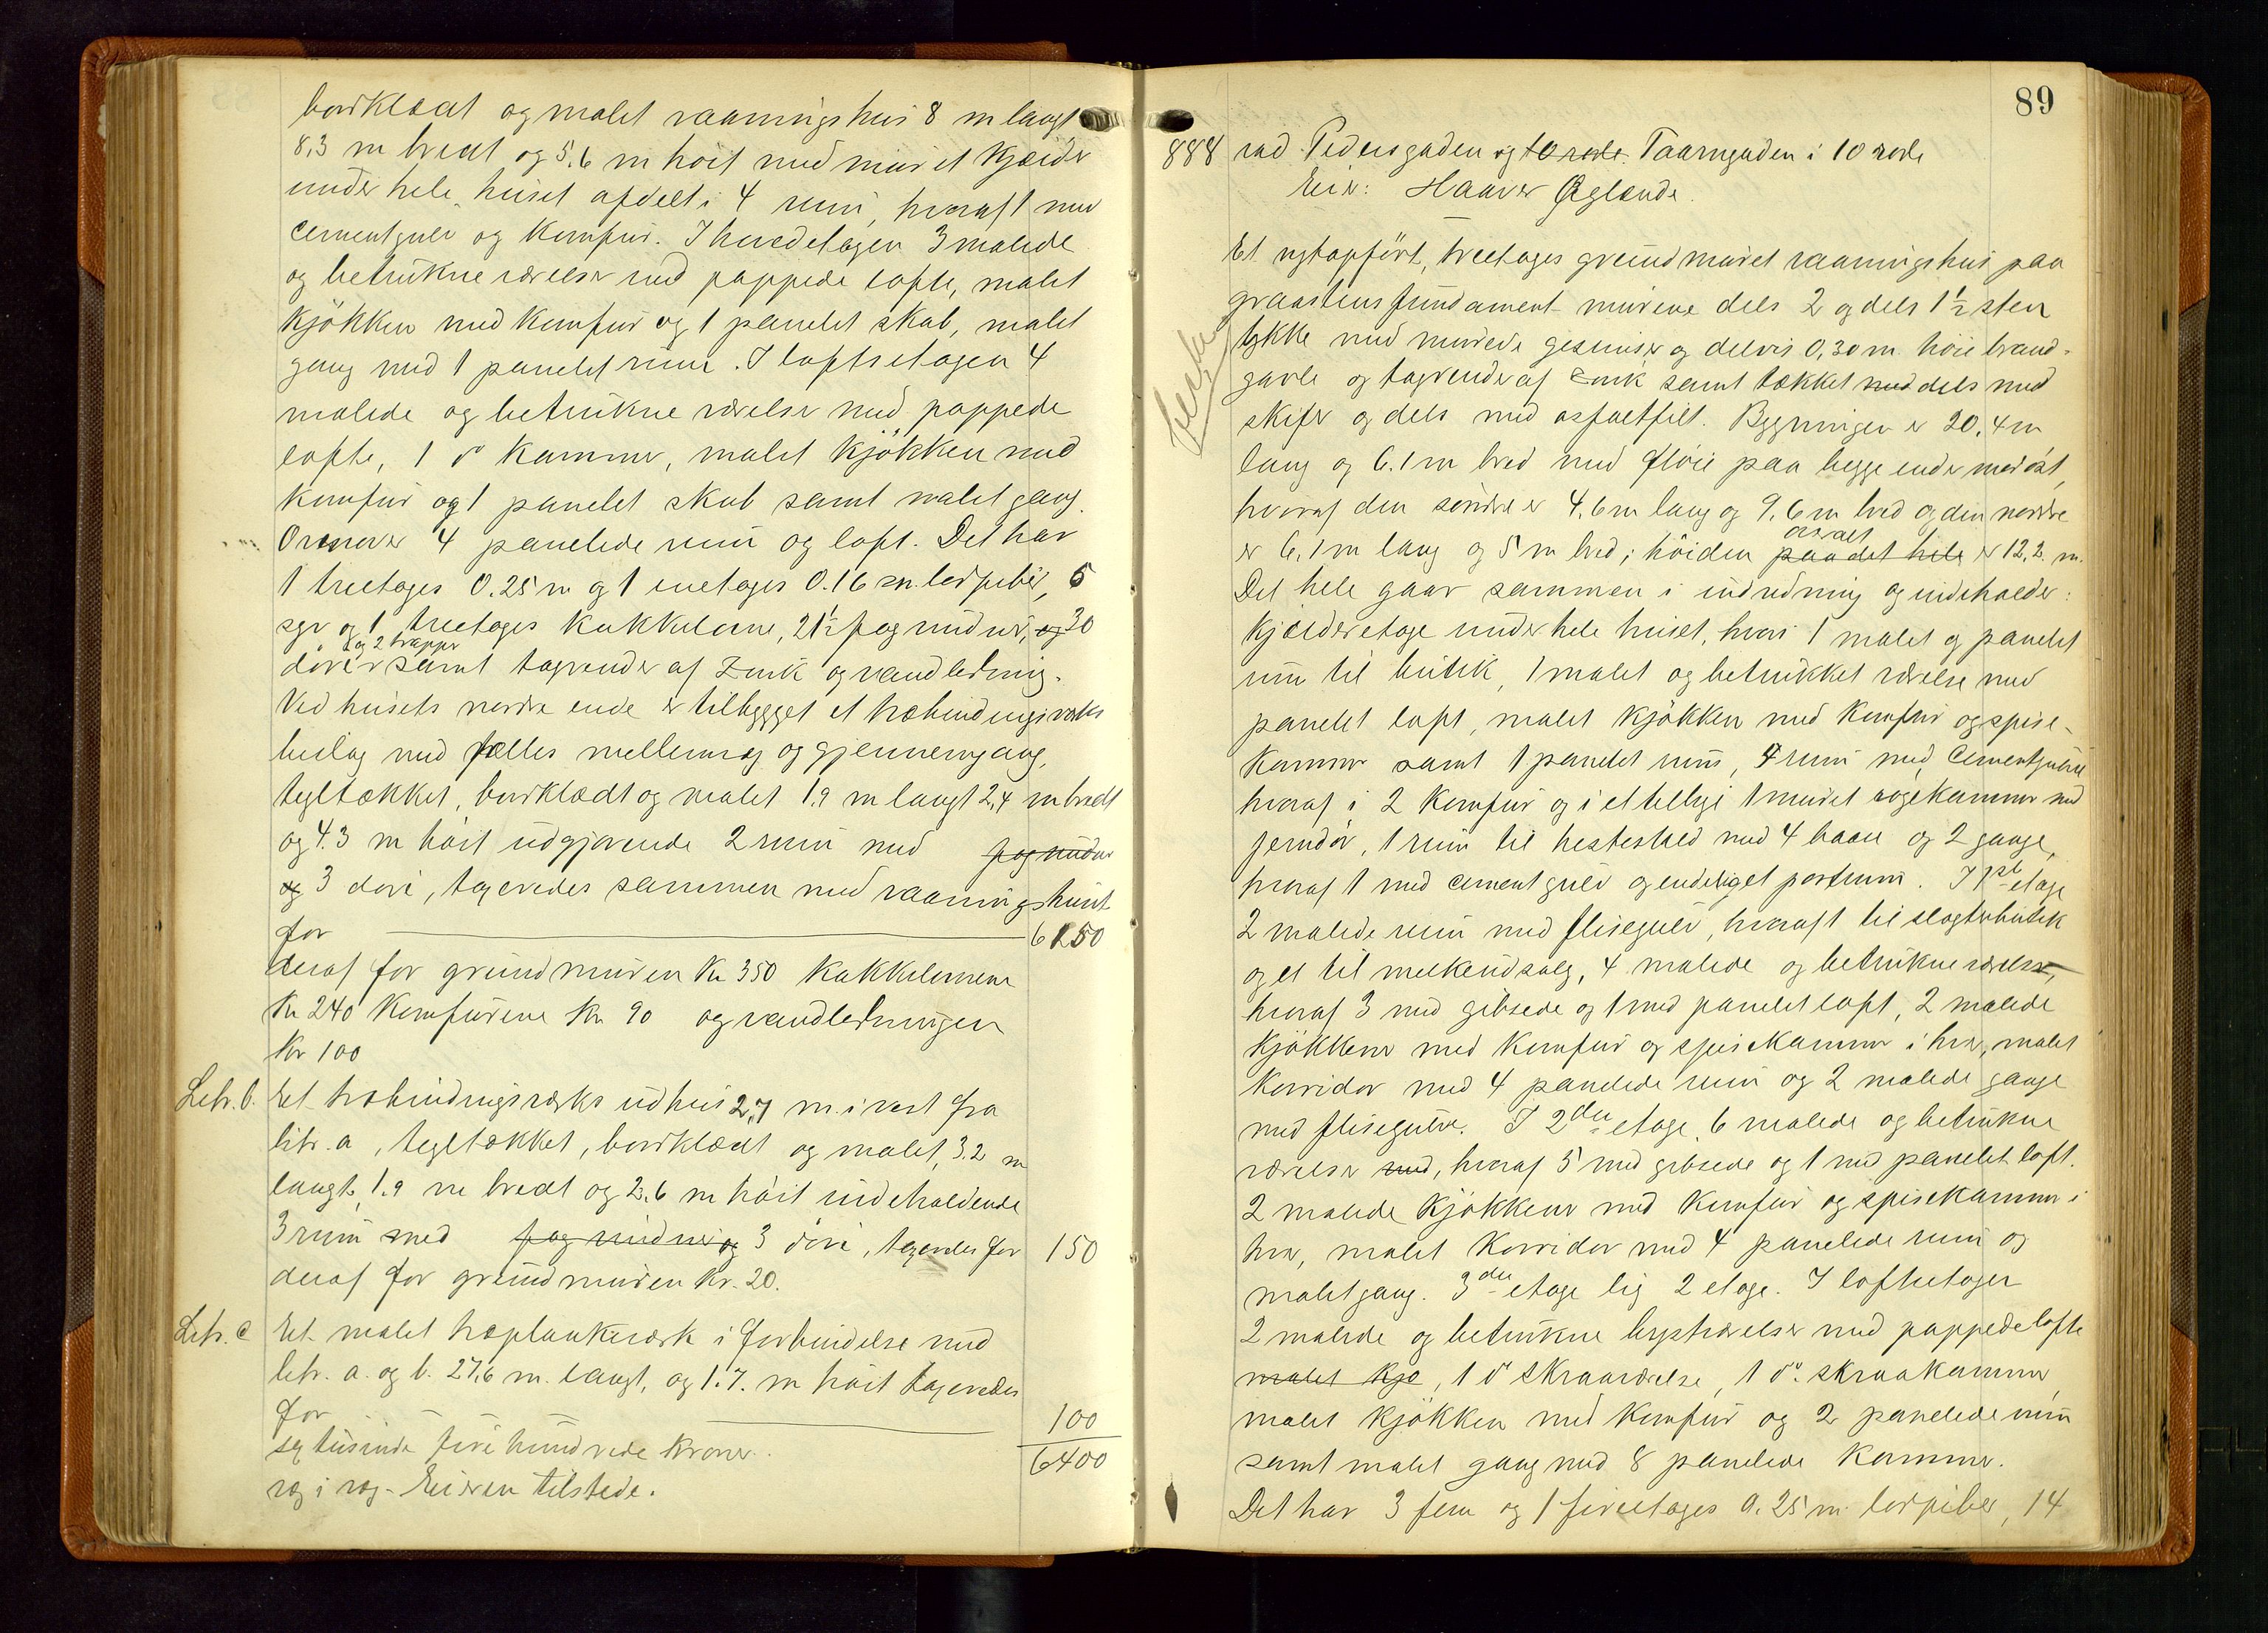 bordklædt og malet vaaningshus 8 m langt
8,3 m bredt og 5,6 m høit med muret Kjælder
under hele huset afdelt i 4 rum, hvoraf 1 med
cementgulv og Komfur. I hovedetagen 3 malede
og betrukne værelser med pappede lofte, malet
Kjøkken med Komfur og 1 panelet skab, malet
gang med 1 panelet rum. I loftsetagen 4
malede og betrukne værelser med pappede
lofte, 1 do Kammer, malet Kjøkken med
Komfur og 1 panelet skab samt malet gang.
Ovenover 4 panelede rum og loft. Det har
1 treetages 0.25 m og 1 enetages 0.16 m. lodpiber, 5
og 1 treetages Kakkelovne, 21½ fag vinduer, og 30
og 2 trapper
døre samt tagrender af zink og vandledning.
Ved husets nordre ende er tilbygget et træbindingsværks
beslag med fælles mellemvæg og gjennemgang,
tegltækket, bordklædt og malet 1.9 m langt 2,4 m bredt
og 4.3 m høit udgjørende 2 rum med fag vinduer
og 3 døre, taxeredes sammen med vaaningshuset
for 6150
deraf for grundmuren Kr 350 Kakkelovnene
Kr 240 Komfurene Kr 90 og vandledningen
Kr 100
Litr. b. Et træbindingsværks udhus 2,7 m. i vest fra
litr. a, tegltækket, bordklædt og malet, 3.2 m
langt, 1.9 m bredt og 2.6 m høit indeholdende
3 rum med fag vinduer og 3 døre, taxeredes for 150
deraf for grundmuren Kr. 20.
Litr. c Et malet træplankeværk i forbindelse med
litr. a. og b. 27,6 m. langt, og 1.7. m høit taxeredes
for 100
sex tusinde fire hundrede Kroner. 6400
væg i væg. Eieren tilstede.
89
888 ved Pedersgaden og 10 rode. Taarngaden i 10 rode
Eier: Haaver Øglænde.
Et nyt opført, treetages grundmuret vaaningshus paa
graastensfundament murene dels 2 og dels 1½ sten
tykke med murede gesimser og delvis 0,30 m høie brand-
gavle og tagrender af zink samt tækket med dels med
skifer og dels med asfaltfilt. Bygningen er 20,4 m
lang og 6.1 m bred med fløie paa begge ender mod øst,
hvoraf den søndre er 4,6 m lang og 9,6 m bred og den nordre
overalt
er 6,1 m lang og 5 m bred; høiden paa det hele er 12,2. m.
Det hele gaar sammen i indredning og indeholder:
Kjælderetage under hele huset, hvori 1 malet og panelet
rum til butik, 1 malet og betrukket værelse med
panelet loft, malet Kjøkken med Komfur og spise-
Kammer samt 1 panelet rum, 4 rum med Cementgulve
hvoraf i 2 Komfur og i et tillige 1 muret røgekammer med
jerndør, 1 rum til hestestald med 4 baase og 2 gange,
hvoraf 1 med cementgulv og endeligt portrum. I 1ste etage
2 malede rum med flisegulv, hvoraf 1 til slagterbutik
og et til melkeudsalg, 4 malede og betrukne værelser,
hvoraf 3 med gibsede og 1 med panelet loft, 2 malede
Kjøkkener med Komfur og spiseKammer i hver, malet
Korridor med 4 panelede rum og 2 malede gange
med flisegulve. I 2den etage 6 malede og betrukne
værelser med, hvoraf 5 med gibsede og 1 med panelet loft.
2 malede Kjøkkener med Komfur og spiseKammer i
hver, malet Korridor med 4 panelede rum og
malet gang. 3die etage lig 2 etage. I loftsetagen
2 malede og betrukne kvistværelser med pappede lofte
malet Kjø, 1 do skraaværelse, 1 do. skraakammer,
malet Kjøkken med Komfur og 2 panelede rum
samt malet gang med 8 panelede Kammer.
Det har 3 fem og 1 fireetages 0.25 m lodpiber, 14